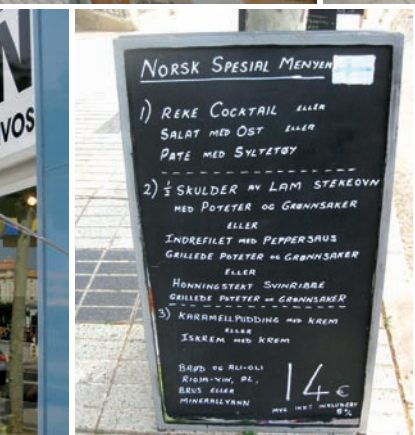 N
VOS
NORSK SPESIAL MENYEN
1) REKE COCKTAIL ELLER
SALAT MED OST ELLER
PATE MED SYLTETØY
2) ½ SKULDER AV LAM STEKEOVN
MED POTETER OG GRØNNSAKER
ELLER
INDREFILET MED PEPPERSAUS
GRILLEDE POTETER OG GRØNNSAKER
ELLER
HONNINGSTEKT SVINRIBBE
GRILLEDE POTETER OG GRØNNSAKER
3) KARAMELLPUDDING MED KREM
ELLER
ISKREM MED KREM
BRØD OG ALI-OLI
RIOJA-VIN, ØL,
BRUS ELLER
MINERALLVANN
14 €
MVA IKKE INKLUDERT
8%